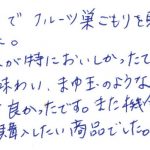 で フルーツ巣ごもりを
た。
が特においしかったで
味わい、まゆ玉のような
良かったです。また機
購入したい商品でした。